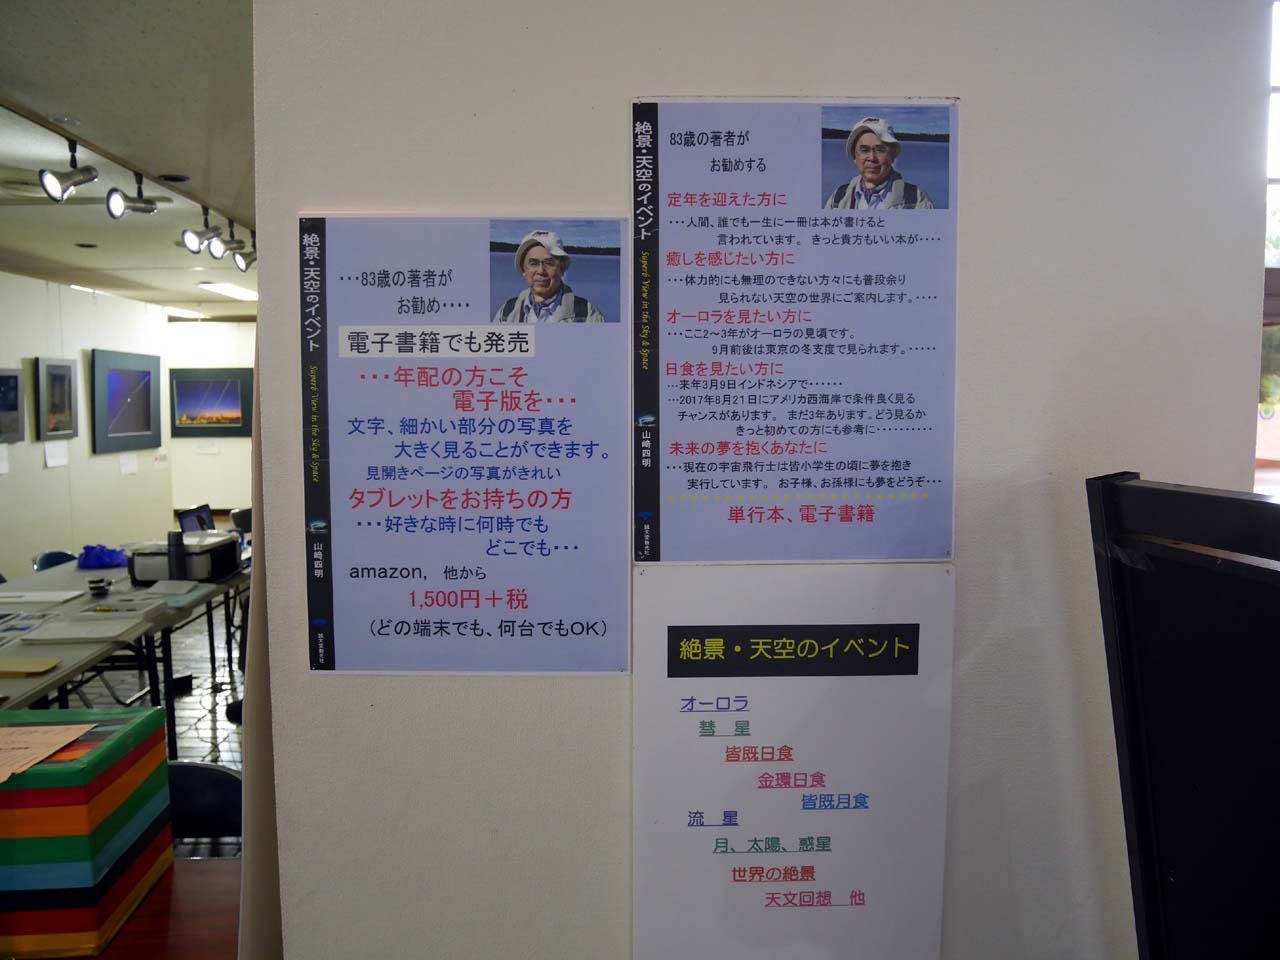 絶景・天空のイベント
Superb View in the Sky & Space
山崎四明
誠文堂新光社
・・・83歳の著者が
お勧め・・・・
電子書籍でも発売
・・・年配の方こそ
電子版を・・・
文字、細かい部分の写真を
大きく見ることができます。
見開きページの写真がきれい
タブレットをお持ちの方
・・・好きな時に何時でも
どこでも・・・
amazon, 他から
1,500円＋税
（どの端末でも、何台でもOK）
絶景・天空のイベント
Superb View in the Sky & Space
山崎四明
誠文堂新光社
83歳の著者が
お勧めする
定年を迎えた方に
・・・人間、誰でも一生に一冊は本が書けると
言われています。 きっと貴方もいい本が・・・・
癒しを感じたい方に
・・・体力的にも無理のできない方々にも普段余り
見られない天空の世界にご案内します。・・・・
オーロラを見たい方に
・・・ここ2～3年がオーロラの見頃です。
9月前後は東京の冬支度で見られます。・・・・・
日食を見たい方に
・・・来年3月9日インドネシアで・・・・・・
・・・2017年8月21日にアメリカ西海岸で条件良く見る
チャンスがあります。 まだ3年あります。どう見るか
きっと初めての方にも参考に・・・・・・・・・
未来の夢を抱くあなたに
・・・現在の宇宙飛行士は皆小学生の頃に夢を抱き
実行しています。 お子様、お孫様にも夢をどうぞ・・・
単行本、電子書籍
絶景・天空のイベント
オーロラ
彗　星
皆既日食
金環日食
皆既月食
流　星
月、太陽、惑星
世界の絶景
天文回想　他